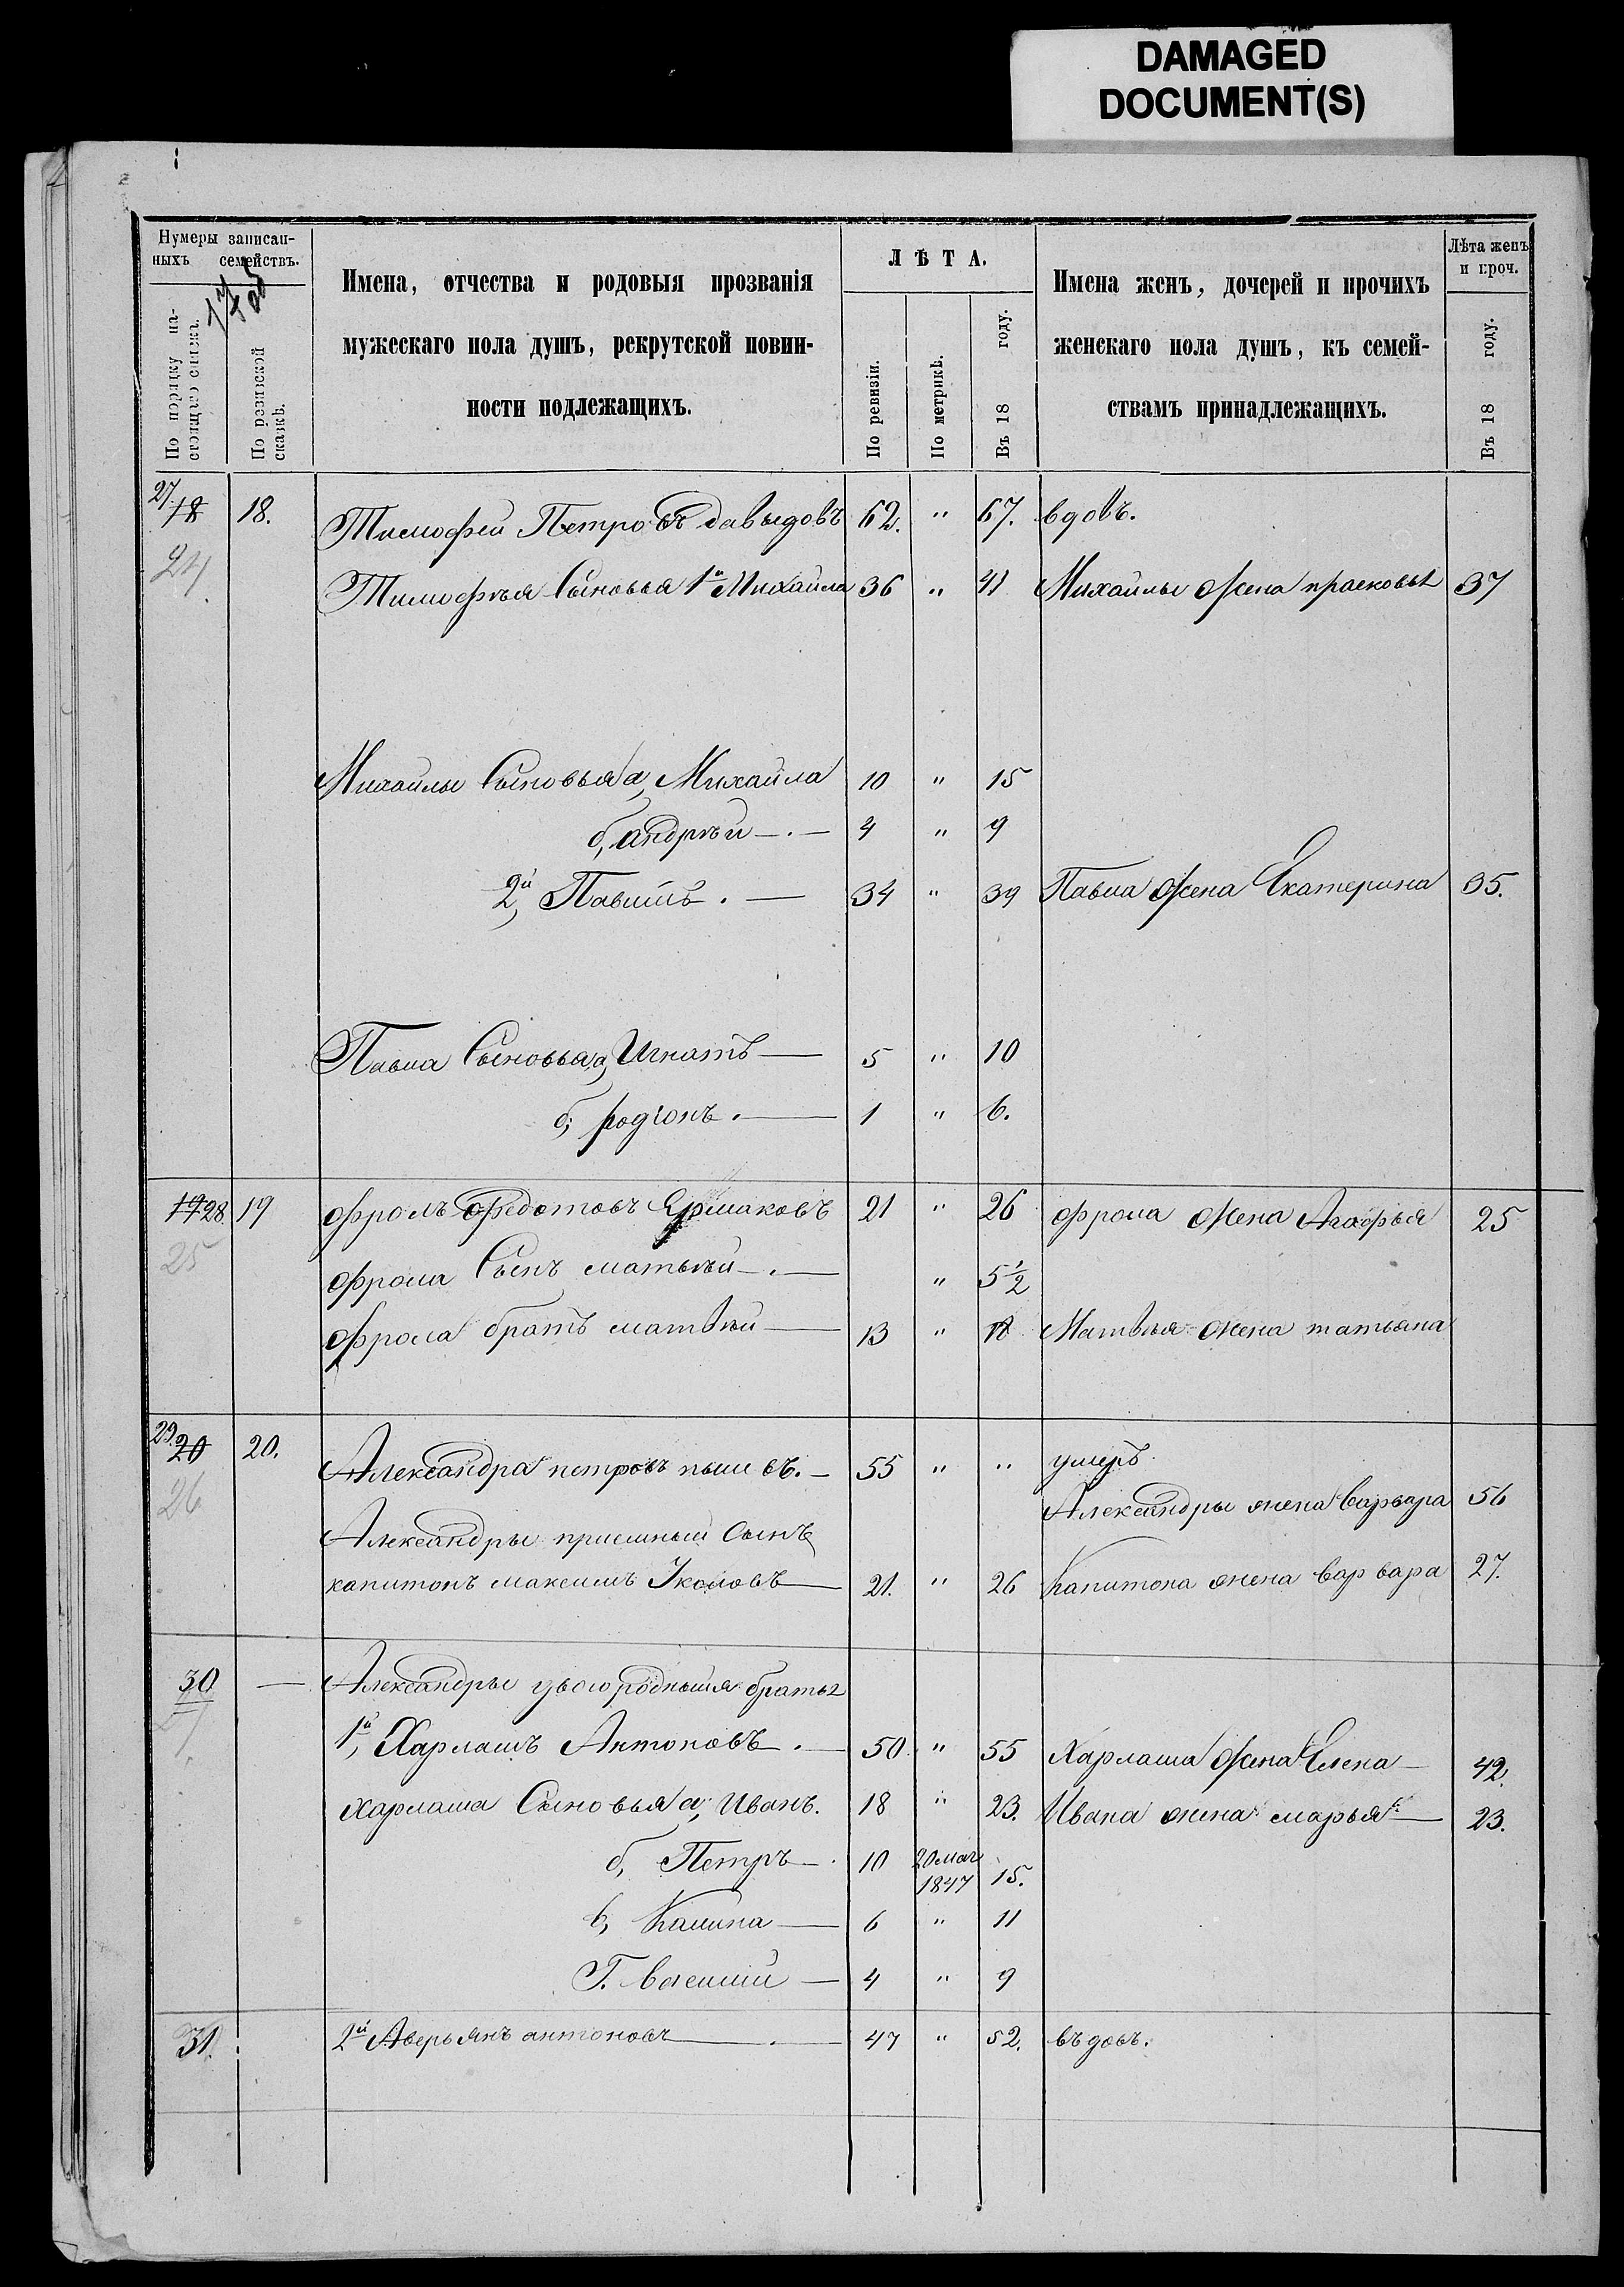 DAMAGED
DOCUMENT(S)
Нумеры записан-
ныхъ семействъ.
По порядку на-
стоящаго списка.
По ревизской
сказкѣ.
Имена, отчества и родовыя прозванія
мужескаго пола душъ, рекрутской повин-
ности подлежащихъ.
ЛѢТА.
По ревизіи.
По метрикѣ.
Въ 18 году.
Имена женъ, дочерей и прочихъ
женскаго пола душъ, къ семей-
ствамъ принадлежащихъ.
Лѣта женъ
и проч.
Въ 18 году.
27. 18 18. Тимофей Петровъ Давыдовъ 62. " 67. вдовъ.
24. Тимофѣя Сыновья 1й Михайла 36 " 41 Михайлы Жена прасковья 37
Михайлы Сыновья а, Михайла 10 " 15
б, андрѣй 4 " 9
2й, Павилъ. 34 " 39 Павла Жена Екатерина 35.
Павла Сыновья а, Игнатъ 5 " 10
б, родіонъ. 1 " 6.
19 28. 19 Фролъ Федотовъ Ермаковъ 21 " 26 Фрола Жена Агафья 25
25 Фрола Сынъ матвѣй " 5 1/2
Фрола братъ матвѣй 13 " 18 Матвѣя Жена татьяна
29. 20 20. Александра петровъ 55 " " умеръ.
26 Александры жена Варвара 56
Александры приемный Сынъ
капитонъ максимъ 21. " 26 Капитона жена варвара 27.
30 — Александры двоюродныя братья
1й, Харлашъ Антоновъ. 50. " 55 Харлаша Жена Елена 42.
харлаша Сыновья а, Иванъ. 18 " 23. Ивана жена марья 23.
б, Петръ 10 20 мая 15.
1847
в, Калина 6 " 11
Г. василий 4 " 9
31. 2й Аверьянъ антоновъ 47 " 52. въдовъ.